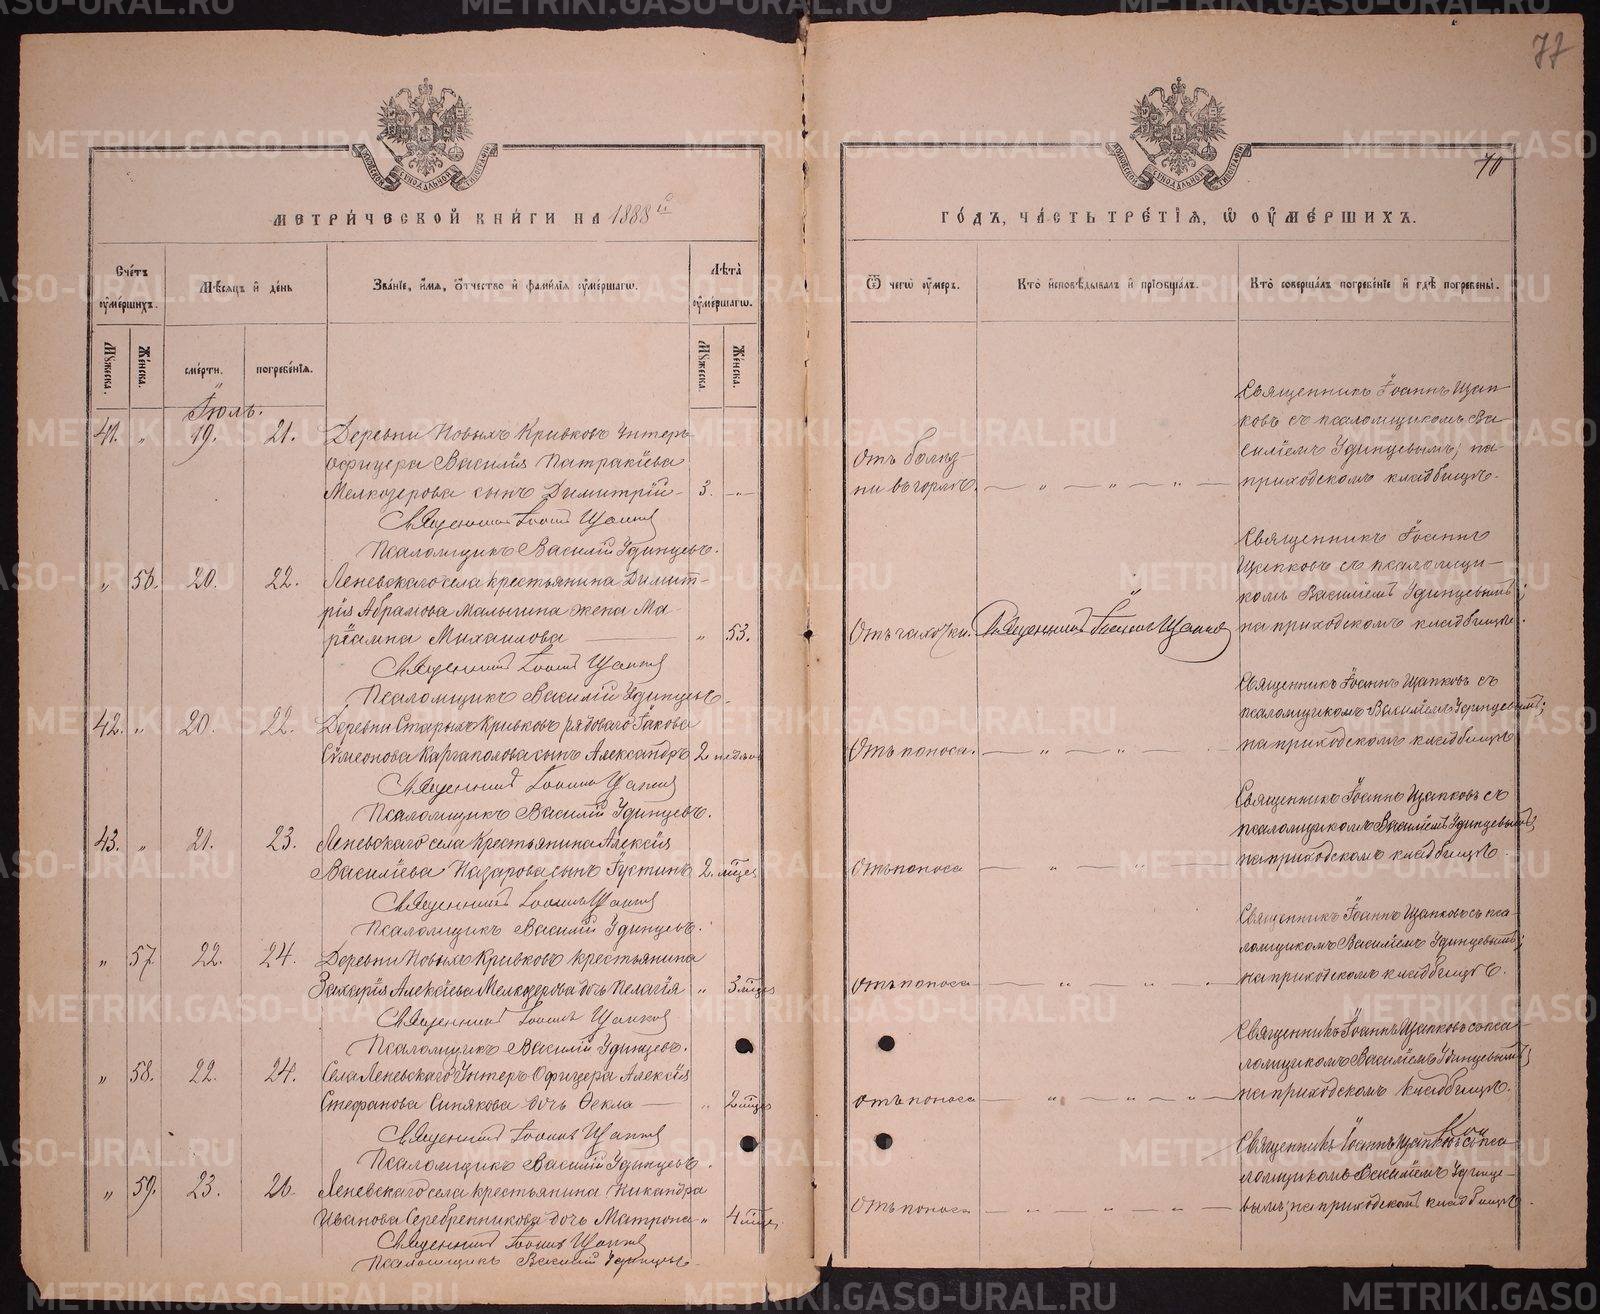 77
70
МОСКОВСКОЙ СѴНОДАЛЬНОЙ ТИПОГРАФІИ
МОСКОВСКОЙ СѴНОДАЛЬНОЙ ТИПОГРАФІИ
МЕТРИ́ЧЕСКОЙ КНИ́ГИ НА 1888й
ГО́ДЪ, ЧА́СТЬ ТРЕ́ТІѦ, Ѡ҆ ОУ҆МЕ́РШИХЪ.
Сче́тъ оу҆ме́ршихъ.
Мѣ́сяцъ и҆ де́нь
Зва́ніе, и҆́мѧ, ѻ҆́тчество и҆ фами́лїѧ оу҆ме́ршагѡ.
Лѣ́та оу҆ме́ршагѡ.
Ѿ чегѡ̀ оу҆́меръ.
Кто̀ и҆сповѣ́дывалъ и҆ прїѻбща́лъ.
Кто̀ соверша́лъ погребе́нїе и҆ гдѣ̀ погребены̀.
Мꙋ́жеска.
Же́нска.
сме́рти.
погребе́нїѧ.
Мꙋ́жеска.
Же́нска.
Іюль.
41. " 19. 21. Деревни Новыхъ Кривковъ Унтеръ-
офицера Василія Патракіева
Мелкозерова сынъ Димитрій - 3. - " -
Священникъ Іоаннъ Щапковъ
Псаломщикъ Василій Удинцевъ.
Отъ болѣз-
ни въ горлѣ. — " — " — " —
Священникъ Іоаннъ Щап-
ковъ съ псаломщикомъ Ва-
силіемъ Удинцевымъ; на
приходскомъ кладбищѣ.
" 56. 20. 22. Леневскаго села крестьянина Димит-
рія Абрамова Малыгина жена Ма-
ріамна Михаилова — " 53.
Священникъ Іоаннъ Щапковъ
Псаломщикъ Василій Удинцевъ.
Отъ чахотки. Священникъ Іоаннъ Щапковъ
Священникъ Іоаннъ
Щапковъ съ псаломщи-
комъ Василіемъ Удинцевымъ;
на приходскомъ кладбищѣ.
42. " 20. 22. Деревни Старыхъ Кривковъ рядоваго Іакова
Сѵмеонова Каргаполова сынъ Александръ 2 недѣль
Священникъ Іоаннъ Щапковъ
Псаломщикъ Василій Удинцевъ.
Отъ поноса. — " — " —
Священникъ Іоаннъ Щапковъ съ
псаломщикомъ Василіемъ Удинцевымъ;
на приходскомъ кладбищѣ
43. " 21. 23. Леневскаго села Крестьянина Алексія
Василіева Назарова сынъ Іустинъ 2. мѣсяц.
Священникъ Іоаннъ Щапковъ
Псаломщикъ Василій Удинцевъ.
Отъ поноса — " — " —
Священникъ Іоаннъ Щапковъ съ
псаломщикомъ Василіемъ Удинцевымъ;
на приходскомъ кладбищѣ.
" 57 22. 24. Деревни Новыхъ Кривковъ крестьянина
Захарія Алексіева Мелкозерова дочь Пелагія " 3 мѣсяц
Священникъ Іоаннъ Щапковъ
Псаломщикъ Василій Удинцевъ.
отъ поноса — " — " — "
Священникъ Іоаннъ Щапковъ съ пса-
ломщикомъ Василіемъ Удинцевымъ;
на приходскомъ кладбищѣ.
" 58. 22. 24. Села Леневскаго Унтеръ-Офицера Алексія
Стефанова Синякова дочь Ѳекла — " 2 мѣсяц
Священникъ Іоаннъ Щапковъ
Псаломщикъ Василій Удинцевъ.
отъ поноса — " — " — " —
Священникъ Іоаннъ Щапковъ съ пса-
ломщикомъ Василіемъ Удинцевымъ;
на приходскомъ кладбищѣ.
" 59. 23. 26. Леневскаго села крестьянина Никандра
Иванова Серебренникова дочь Матрона - " 4 мѣсяц.
Священникъ Іоаннъ Щапковъ
Псаломщикъ Василій Удинцевъ.
Отъ поноса — " — " — " —
Священникъ Іоаннъ Щапковъ съ пса-
ломщикомъ Василіемъ Удинце-
вымъ; на приходскомъ кладбищѣ.
METRIKI.GASO-URAL.RU